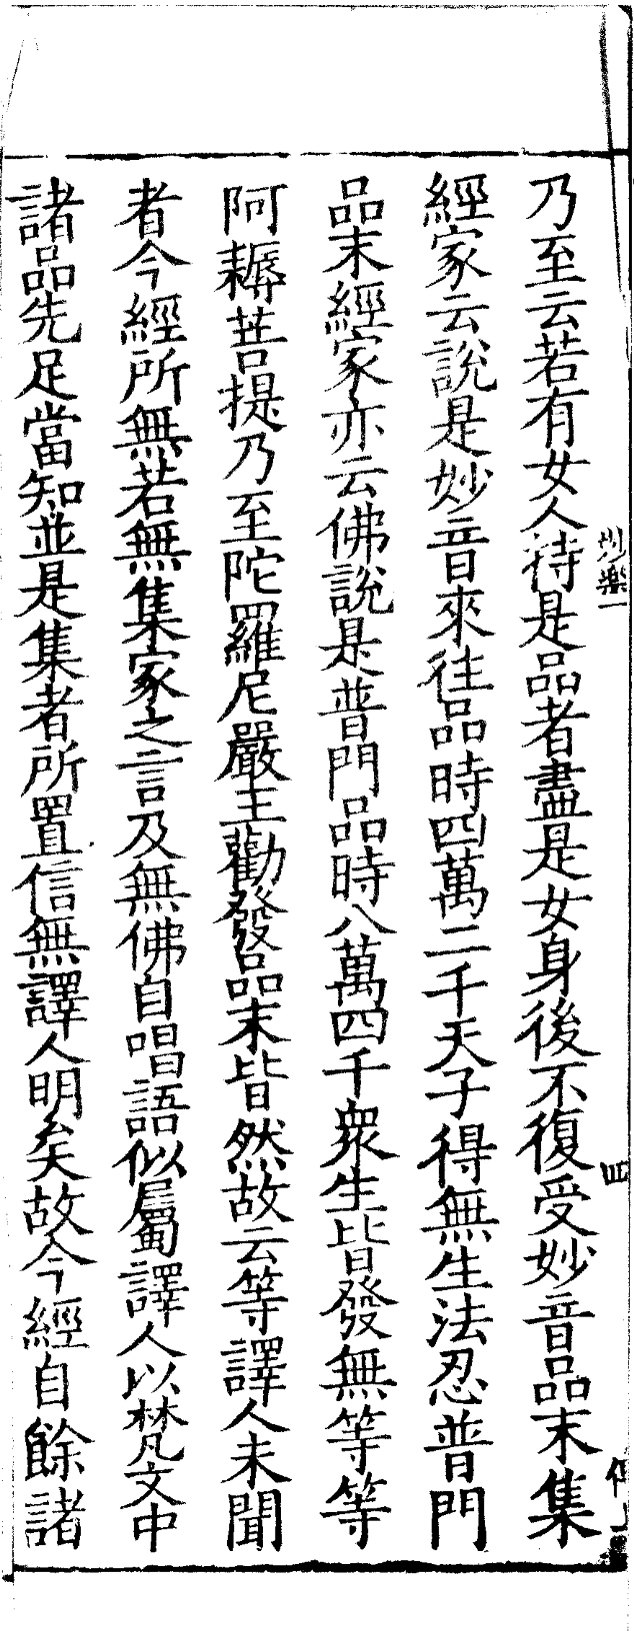 乃至云若有女人持是品者盡是女身後不復受妙音品末集
經家云說是妙音來往品時四萬二千天子得無生法忍普門
品末經家亦云佛說是普門品時八萬四千衆生皆發無等等
阿耨菩提乃至陀羅尼嚴王勸發品末皆然故云等譯人未聞
者今經所無若無集家之言及無佛自唱語似屬譯人以梵文中
諸品先足當知並是集者所置信無譯人明矣故今經自餘諸
四